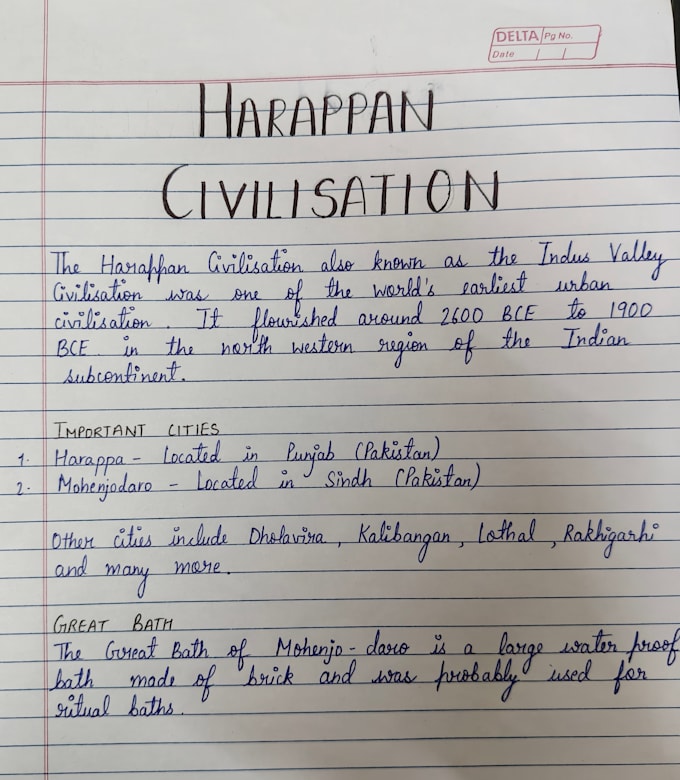 DELTA Pg No.
Date / /
HARAPPAN
CIVILISATION
The Harappan Civilisation also known as the Indus Valley
Civilisation was one of the world's earliest urban
civilisation. It flourished around 2600 BCE to 1900
BCE in the north western region of the Indian
subcontinent.
IMPORTANT CITIES
1. Harappa - Located in Punjab (Pakistan)
2. Mohenjodaro - Located in Sindh (Pakistan)
Other cities include Dholavira, Kalibangan, Lothal, Rakhigarhi
and many more.
GREAT BATH
The Great Bath of Mohenjo-daro is a large water proof
bath made of brick and was probably used for
ritual baths.